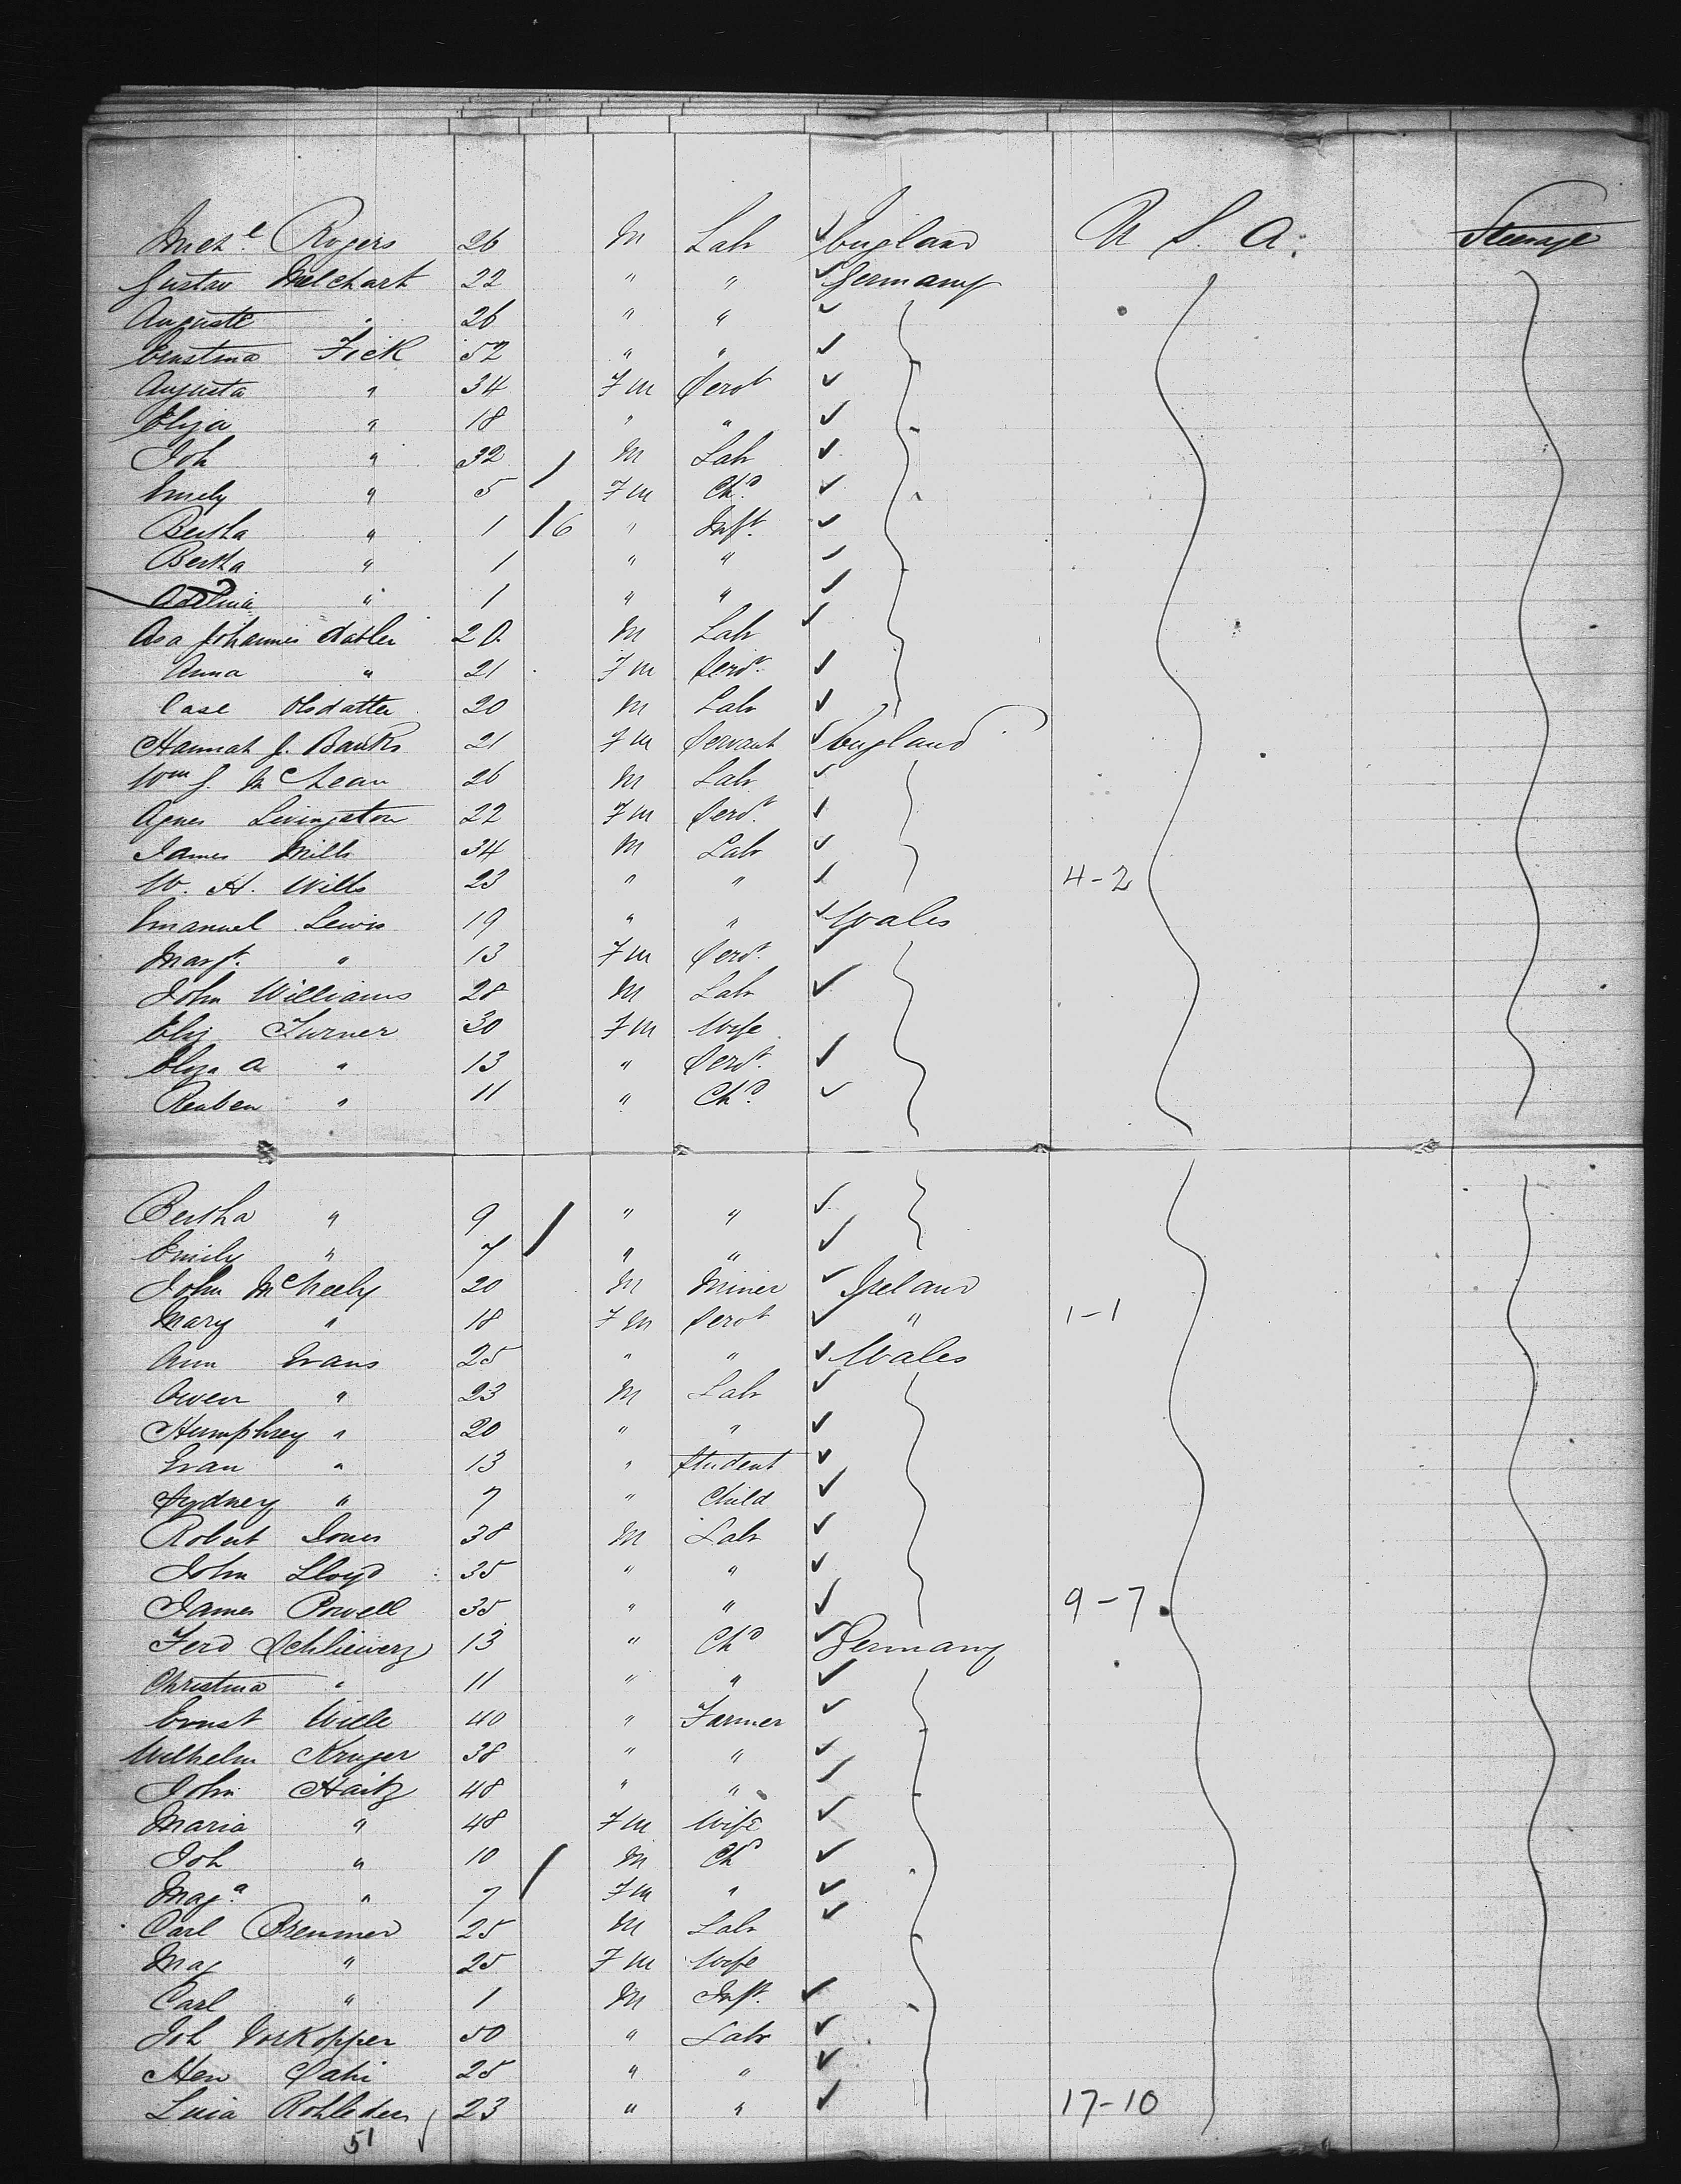 Mich.l Rogers 26 M Labr England U. S. A. Steerage
Gustav Melchart 22 " " Germany
Auguste " 26 " "
Ernstina Fick 52 " "
Augusta " 34 Fm Servt
Eliza " 18 " "
Joh " 32 M Labr
Emely " 5 Fm Chd
Bertha " 1 16 " Inft.
Bertha " 1 " "
" 1 " "
Johannes 20 M Labr
Anna " 21 Fm Servt
Olsdatter 20 M Labr
Hannah J. Banks 21 Fm Servant England
Wm J. 26 M Labr
Agnes Livingston 22 Fm Servt
James Mills 34 M Labr
W. H. Wills 23 " " 4-2
Emanuel Lewis 19 " " Wales
Margt. " 13 Fm Servt
John Williams 28 M Labr
Eliz Turner 30 Fm Wife
Eliza A " 13 " Servt
Reuben " 11 " Chd
Bertha " 9 " "
Emily " 7 " "
John McNeely 20 M Miner Ireland
Mary " 18 Fm Servt " 1-1
Ann Evans 25 " " Wales
Owen " 23 M Labr
Humphrey " 20 " "
Evan " 13 " Student
Sydney " 7 " Child
Robert Jones 38 M Labr
John Lloyd 35 " "
James Powell 35 " " 9-7
Ferd 13 " Chd Germany
Christina " 11 " "
Ernst Wille 40 " Farmer
Wilhelm Kruger 38 " "
John Haitz 48 " "
Maria " 48 Fm Wife
Joh " 10 M Chd
Mag.a " 7 Fm "
Carl Bremmer 25 M Labr
Mag " 25 Fm Wife
Carl " 1 M Inft.
Joh Vorkopper 50 " Labr
Hen 25 " "
23 " " 17-10
51